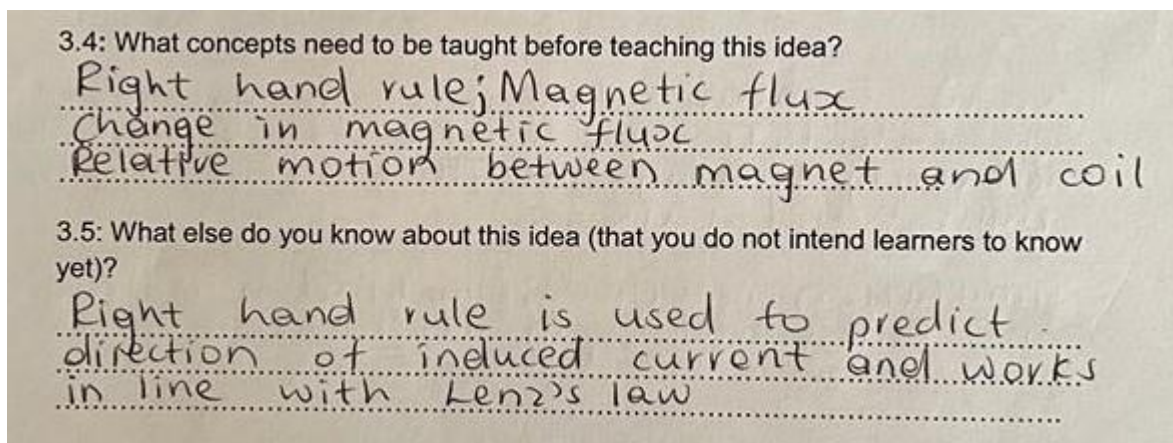 3.4: What concepts need to be taught before teaching this idea?
Right hand rule; Magnetic flux
Change in magnetic flux
Relative motion between magnet and coil
3.5: What else do you know about this idea (that you do not intend learners to know
yet)?
Right hand rule is used to predict
direction of induced current and works
in line with Lenz's law